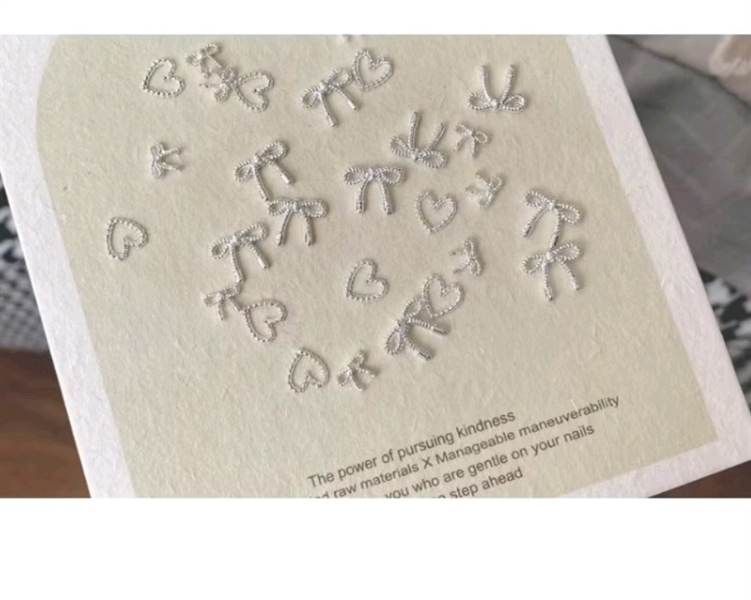 The power of pursuing kindness
raw materials X Manageable maneuverability
you who are gentle on your nails
step ahead